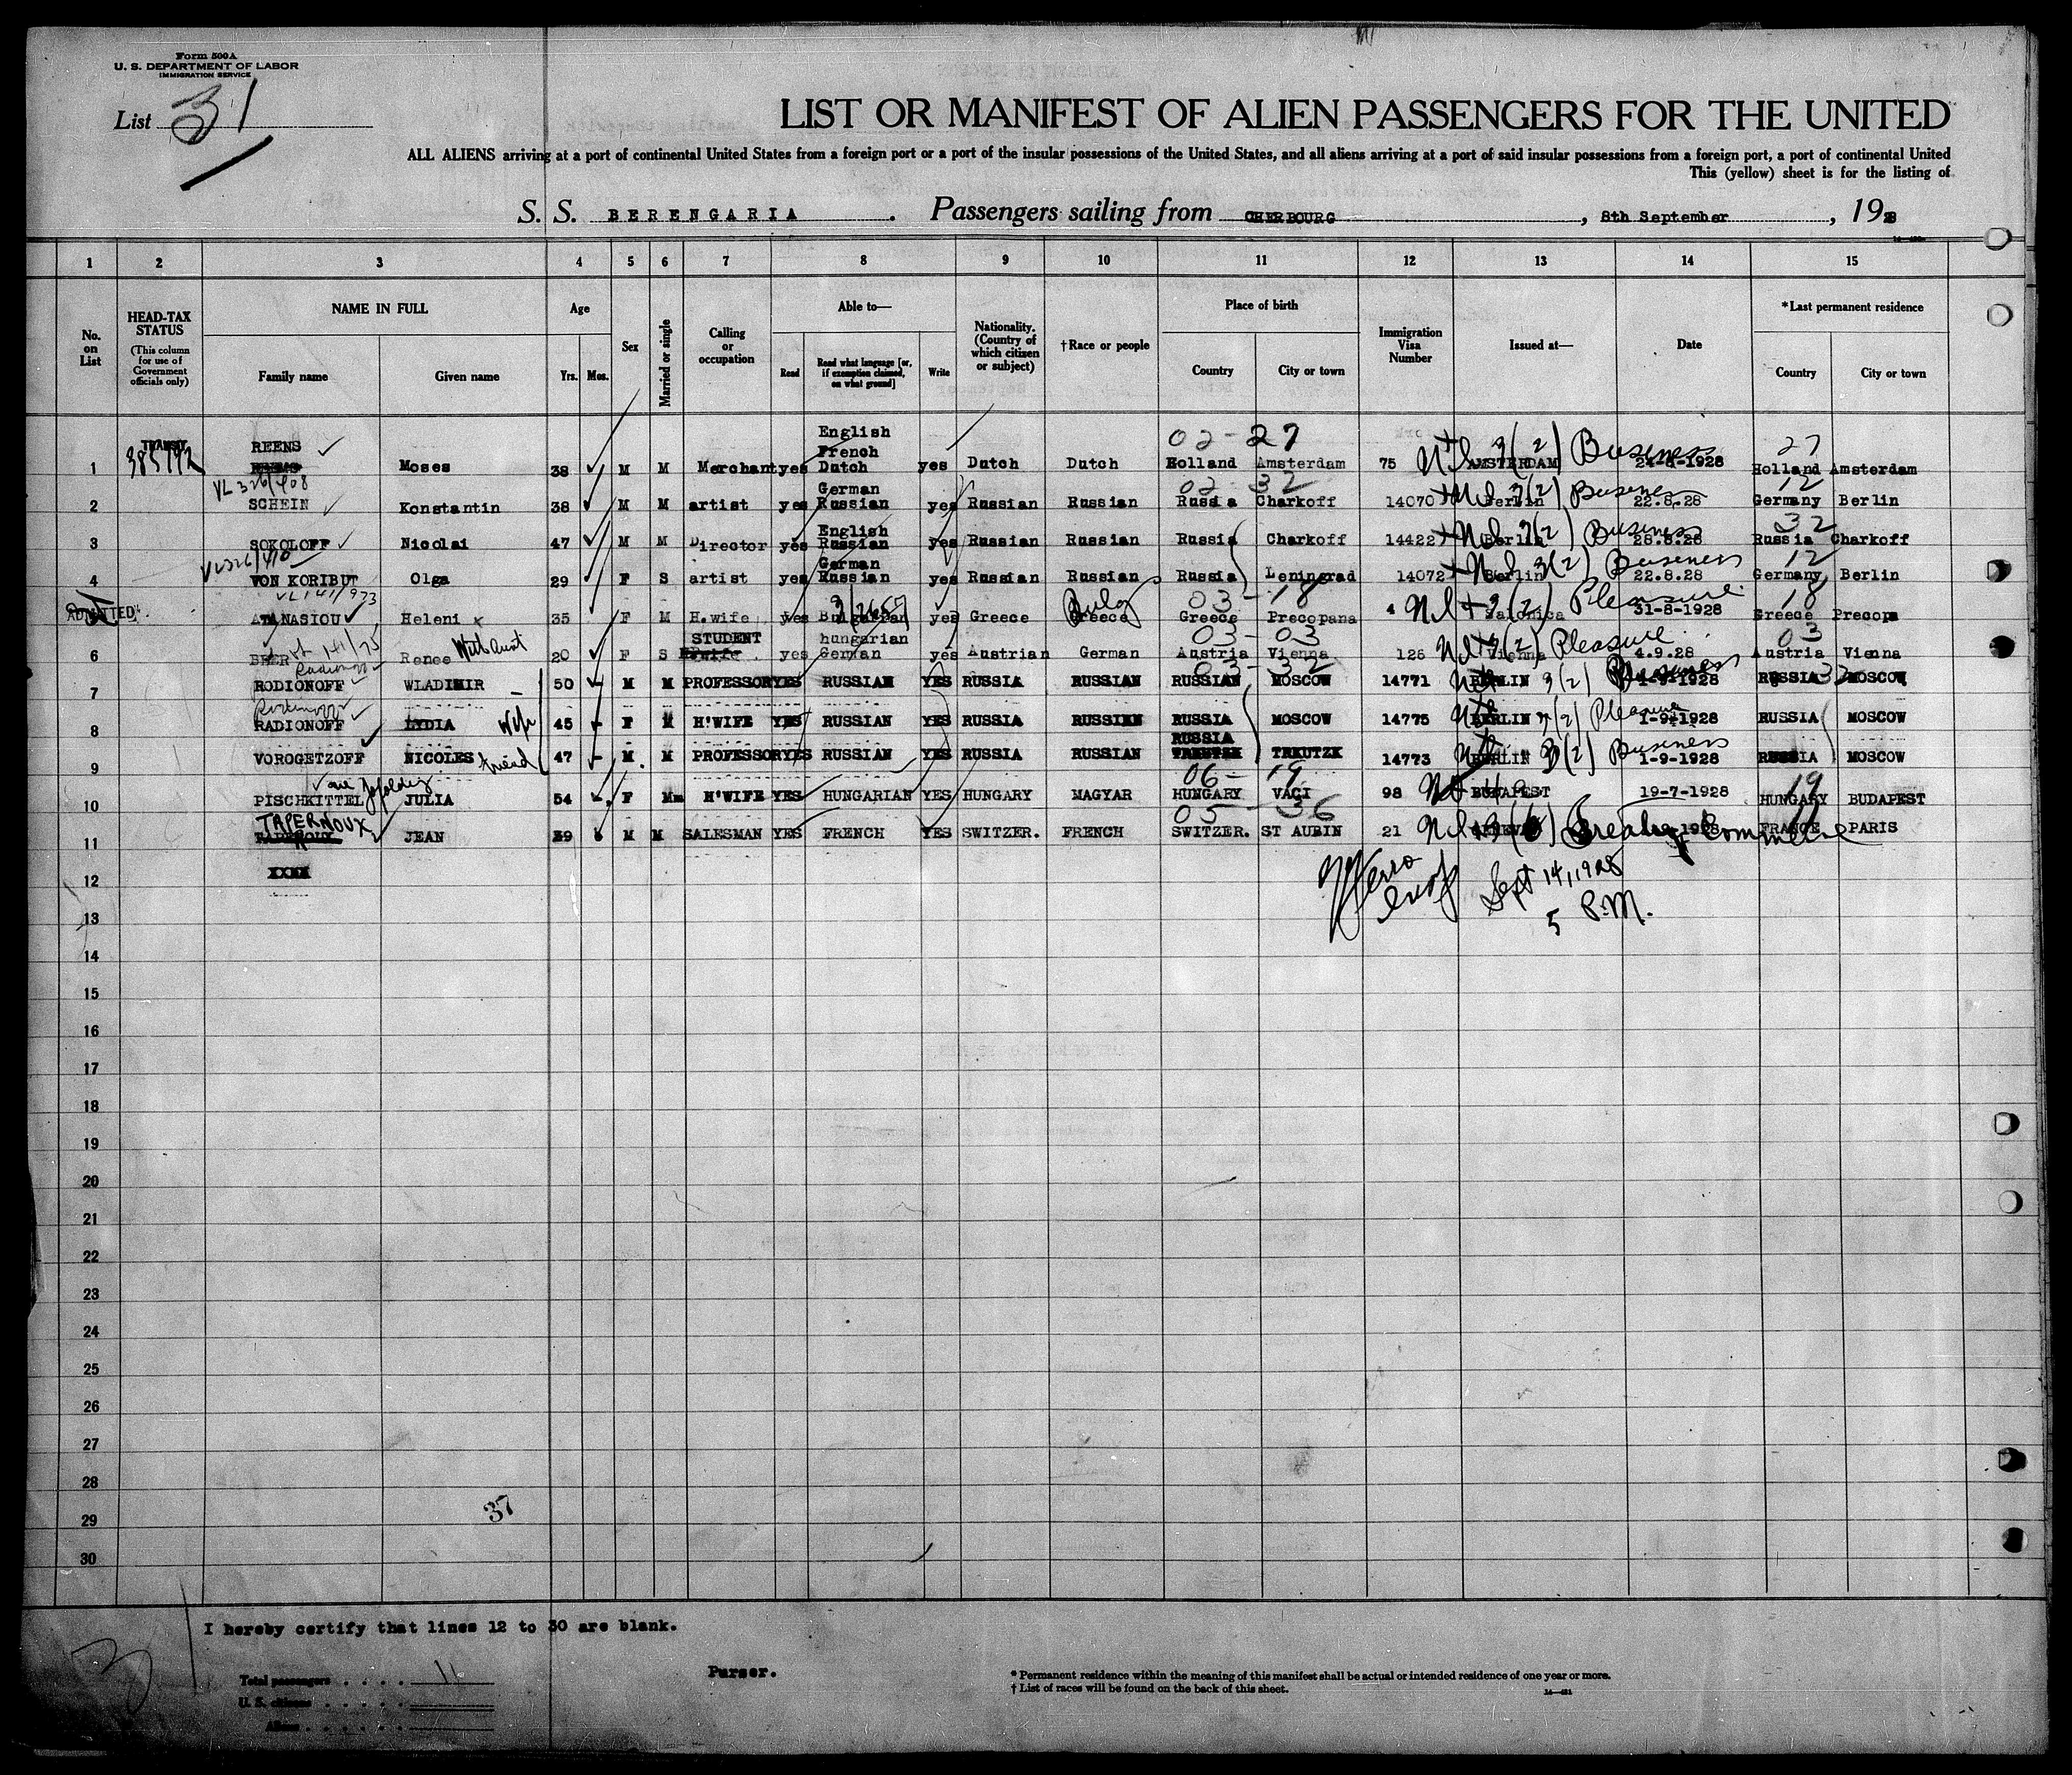 Form 500A
U. S. DEPARTMENT OF LABOR
IMMIGRATION SERVICE
List 31
LIST OR MANIFEST OF ALIEN PASSENGERS FOR THE UNITED
ALL ALIENS arriving at a port of continental United States from a foreign port or a port of the insular possessions of the United States, and all aliens arriving at a port of said insular possessions from a foreign port, a port of continental United
This (yellow) sheet is for the listing of
S. S. BERENGARIA. Passengers sailing from CHERBOURG, 8th September, 1928
1 2 3 4 5 6 7 8 9 10 11 12 13 14 15
No. on List
HEAD-TAX STATUS (This column for use of Government officials only)
NAME IN FULL Family name Given name
Age Yrs. Mos.
Sex
Married or single
Calling or occupation
Able to— Read Read what language [or, if exemption claimed, on what ground] Write
Nationality. (Country of which citizen or subject)
†Race or people
Place of birth Country City or town
Immigration Visa Number
Issued at—
Date
*Last permanent residence Country City or town
English
REENS French 02-27 27
1 TRANSIT 385792 Moses 38 M M Merchant yes Dutch yes Dutch Dutch Holland Amsterdam 75 AMSTERDAM 3(2) Business 24-8-1928 Holland Amsterdam
VL 326/408 German 02 32 12
2 SCHEIN Konstantin 38 M M artist yes Russian yes Russian Russian Russia Charkoff 14070 Berlin 3(2) 22.8.28 Germany Berlin
English 32
3 SOKOLOFF Nicolai 47 M M Director yes Russian yes Russian Russian Russia Charkoff 14422 Berlin 3(2) Business 28.8.28 Russia Charkoff
German 12
4 VON KORIBUT Olga 29 F S artist yes Russian yes Russian Russian Russia Leningrad 14072 Berlin 3(2) Business 22.8.28 Germany Berlin
VL 141/923 03-18 18
ADMITTED ATANASIOU Heleni 35 F M H.wife yes Bulgarian yes Greece Greece Bulg Greece Precopana 4 Salonica 3(2) Pleasure 31-8-1928 Greece Precopa
STUDENT hungarian 03-03 03
6 BEER Renee With Aunt 20 F S yes German yes Austrian German Austria Vienna 126 Vienna 3(2) Pleasure 4.9.28 Austria Vienna
03-32
7 RODIONOFF WLADIMIR 50 M M PROFESSOR YES RUSSIAN YES RUSSIA RUSSIAN RUSSIAN MOSCOW 14771 BERLIN 3(2) Business 1-9-1928 RUSSIA 32 MOSCOW
8 RADIONOFF LYDIA Wife 45 F M H'WIFE YES RUSSIAN YES RUSSIA RUSSIAN RUSSIA MOSCOW 14775 BERLIN 3(2) Pleasure 1-9-1928 RUSSIA MOSCOW
RUSSIA
9 VOROGETZOFF NICOLES friend 47 M M PROFESSOR YES RUSSIAN YES RUSSIA RUSSIAN TRKUTZK 14773 BERLIN 3(2) Business 1-9-1928 RUSSIA MOSCOW
06-19 19
10 PISCHKITTEL JULIA 54 F M H'WIFE YES HUNGARIAN YES HUNGARY MAGYAR HUNGARY VACI 98 BUDAPEST 19-7-1928 HUNGARY BUDAPEST
TAPERNOUX 05-36
11 JEAN 39 M M SALESMAN YES FRENCH YES SWITZER. FRENCH SWITZER. ST AUBIN 21 GENEVA 3(6) 1928 FRANCE PARIS
12 XXXX Sept 14, 1928
13 5 P.M.
14
15
16
17
18
19
20
21
22
23
24
25
26
27
28
37
29
30
I hereby certify that lines 12 to 30 are blank.
Purser.
Total passengers 11
U. S. citizens
Aliens
* Permanent residence within the meaning of this manifest shall be actual or intended residence of one year or more.
† List of races will be found on the back of this sheet.